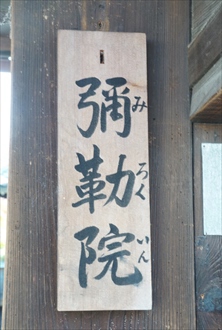 彌勒院
みろくいん